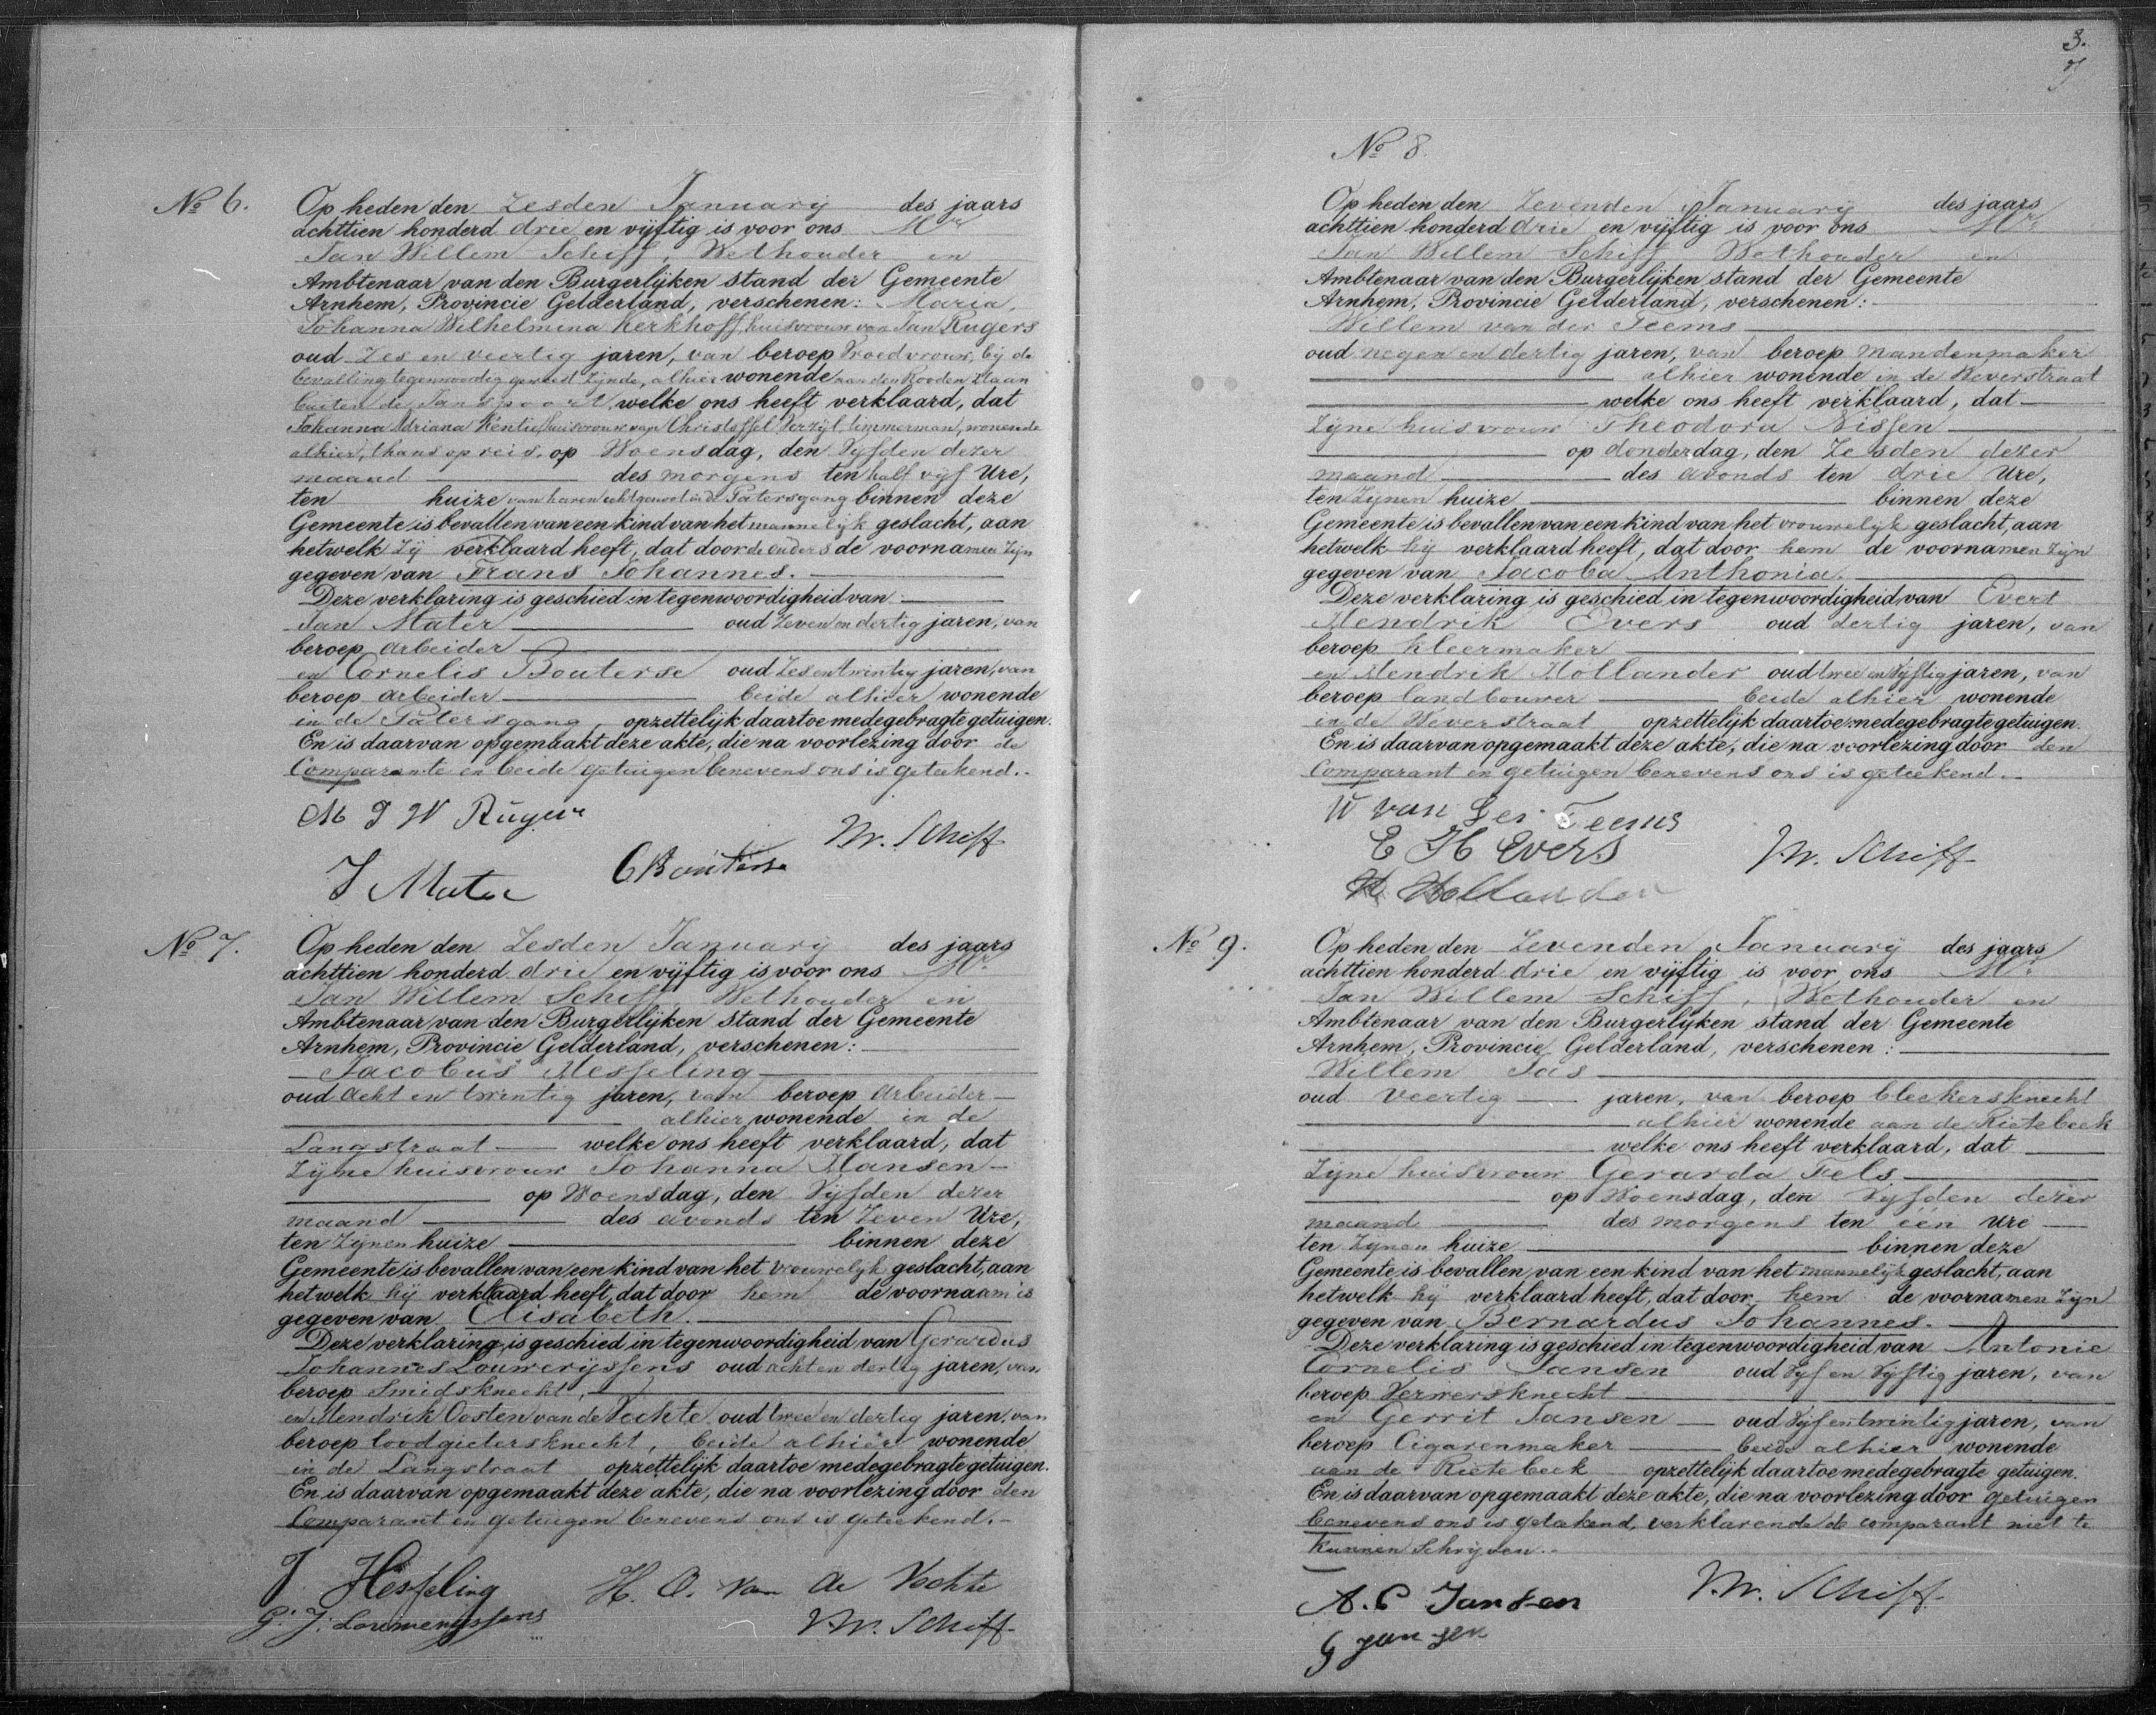 3.
No 6. Op heden den Zesden January des jaars
achttien honderd drie en vijftig is voor ons Mr
Jan Willem Schiff, Wethouder en
Ambtenaar van den Burgerlijken stand der Gemeente
Arnhem, Provincie Gelderland, verschenen: Maria
Johanna Wilhelmina Kerkhoff, huisvrouw van Jan Rugers
oud Zes en veertig jaren, van beroep Vroedvrouw, bij de
bevalling tegenwoordig geweest zijnde, alhier wonende aan den
buiten de Janspoort, welke ons heeft verklaard, dat
Johanna Adriana huisvrouw van Christoffel Verzijl, timmerman, wonende
alhier, thans op reis, op Woensdag, den Vijfden dezer
maand des morgens ten half vijf Ure,
ten huize van haren echtgenoot in de Patersgang binnen deze
Gemeente is bevallen van een kind van het mannelijk geslacht, aan
hetwelk Zij verklaard heeft, dat door de ouders de voornamen zijn
gegeven van Frans Johannes.
Deze verklaring is geschied in tegenwoordigheid van
Jan Mater oud Zeven en dertig jaren, van
beroep arbeider
en Cornelis Bouterse oud Zes en twintig jaren, van
beroep arbeider beide alhier wonende
in de Patersgang, opzettelijk daartoe medegebragte getuigen.
En is daarvan opgemaakt deze akte, die na voorlezing door de
Comparante en beide getuigen benevens ons is geteekend.
M J W Rugers
J.W. Schiff
J Mater
C Bouterse
No 7. Op heden den Zesden January des jaars
achttien honderd drie en vijftig is voor ons Mr
Jan Willem Schiff, Wethouder en
Ambtenaar van den Burgerlijken stand der Gemeente
Arnhem, Provincie Gelderland, verschenen:
Jacobus Hesseling
oud acht en twintig jaren, van beroep Arbeider
alhier wonende in de
Langstraat welke ons heeft verklaard, dat
Zijne huisvrouw Johanna Hansen
op Woensdag, den Vijfden dezer
maand des avonds ten Zeven Ure,
ten Zijnen huize binnen deze
Gemeente is bevallen van een kind van het vrouwelijk geslacht, aan
hetwelk hij verklaard heeft, dat door hem de voornaam is
gegeven van Elisabeth.
Deze verklaring is geschied in tegenwoordigheid van Gerardus
Johannes Louwerijssens oud acht en dertig jaren, van
beroep Smidsknecht,
en Hendrik Oosten van de Vochte oud twee en dertig jaren, van
beroep loodgietersknecht, beide alhier wonende
in de Langstraat opzettelijk daartoe medegebragte getuigen.
En is daarvan opgemaakt deze akte, die na voorlezing door den
Comparant en getuigen benevens ons is geteekend.
J Hesseling
H. O. van de Vochte
G. J. Louwerijssens
J.W. Schiff
No 8.
Op heden den Zevenden January des jaars
achttien honderd drie en vijftig is voor ons Mr
Jan Willem Schiff Wethouder en
Ambtenaar van den Burgerlijken stand der Gemeente
Arnhem, Provincie Gelderland, verschenen:
Willem van der Teems
oud negen en dertig jaren, van beroep mandenmaker
alhier wonende in de Weverstraat
welke ons heeft verklaard, dat
Zijne huisvrouw Theodora Nissen
op donderdag, den Zesden dezer
maand des avonds ten drie Ure,
ten Zijnen huize binnen deze
Gemeente is bevallen van een kind van het vrouwelijk geslacht, aan
hetwelk hij verklaard heeft, dat door hem de voornamen zijn
gegeven van Jacoba Anthonia.
Deze verklaring is geschied in tegenwoordigheid van Evert
Hendrik Evers oud dertig jaren, van
beroep Kleermaker
en Hendrik Hollander oud twee en Vijftig jaren, van
beroep landbouwer beide alhier wonende
in de Weverstraat opzettelijk daartoe medegebragte getuigen.
En is daarvan opgemaakt deze akte, die na voorlezing door den
Comparant en getuigen benevens ons is geteekend.
W van der Teems
E H Evers
J.W. Schiff
H Hollander
No 9. Op heden den Zevenden January des jaars
achttien honderd drie en vijftig is voor ons Mr
Jan Willem Schiff, Wethouder en
Ambtenaar van den Burgerlijken stand der Gemeente
Arnhem, Provincie Gelderland, verschenen:
Willem Tas
oud Veertig jaren, van beroep bleekersknecht
alhier wonende aan de Rietebeek
welke ons heeft verklaard, dat
Zijne huisvrouw Gerarda Fels
op Woensdag, den Vijfden dezer
maand des morgens ten één Ure
ten Zijnen huize binnen deze
Gemeente is bevallen van een kind van het mannelijk geslacht, aan
hetwelk hij verklaard heeft, dat door hem de voornamen zijn
gegeven van Bernardus Johannes.
Deze verklaring is geschied in tegenwoordigheid van Antonie
Cornelis Jansen oud Vijf en Vijftig jaren, van
beroep Verwersknecht
en Gerrit Jansen oud Vijf en twintig jaren, van
beroep Cigarenmaker beide alhier wonende
aan de Rietebeek opzettelijk daartoe medegebragte getuigen.
En is daarvan opgemaakt deze akte, die na voorlezing door getuigen
benevens ons is geteekend, verklarende de comparant niet te
kunnen Schrijven.
A. C Jansen
J.W. Schiff
G Jansen